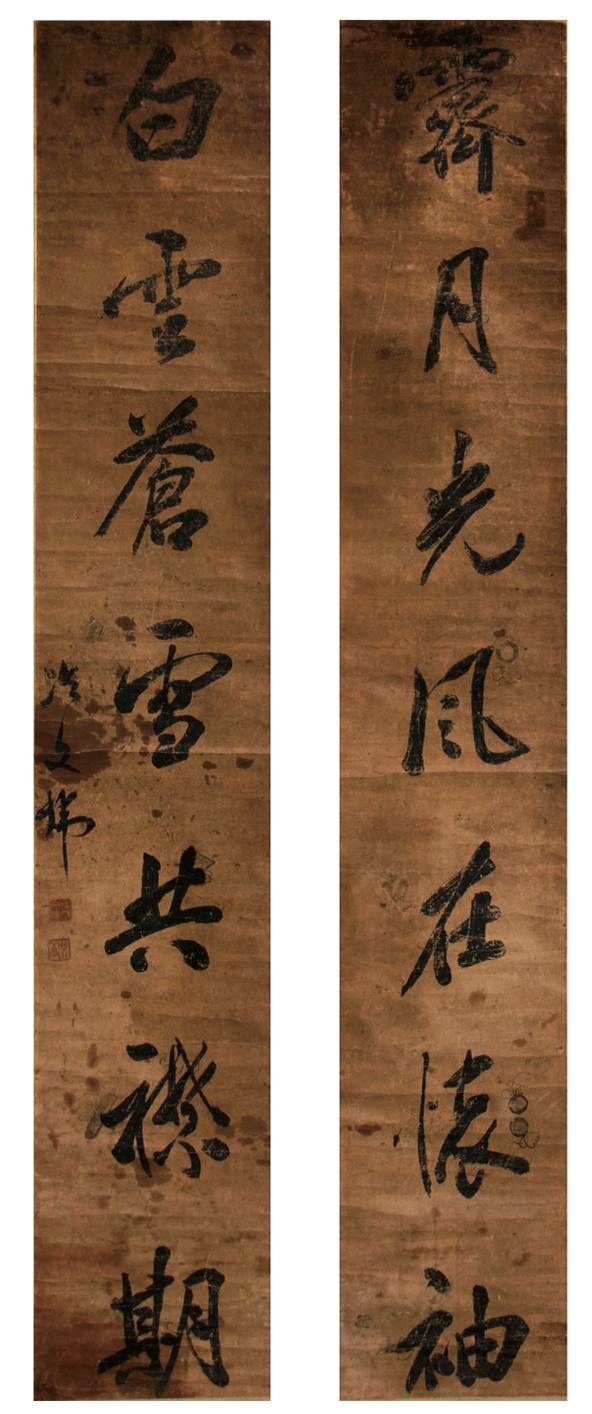 霽月光風在懷袖
白雲蒼雪共襟期
冷文煒